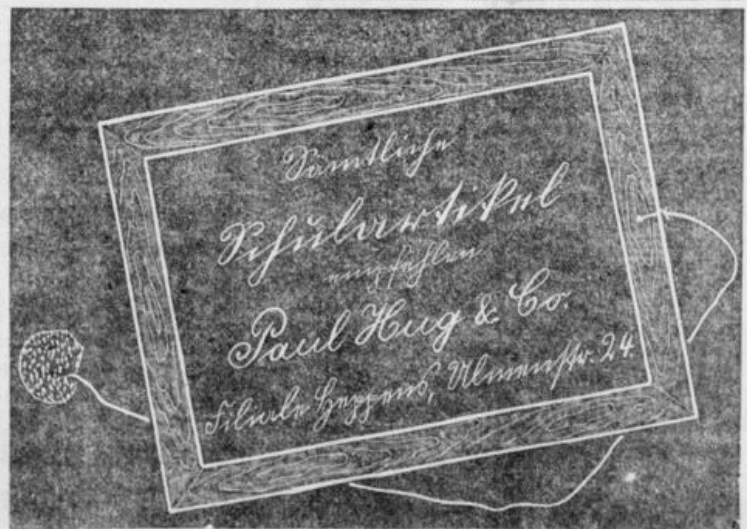 Sämtliche
Schulartikel
empfehlen
Paul Hug & Co.
Filiale Heppens, Ulmenstr. 24.